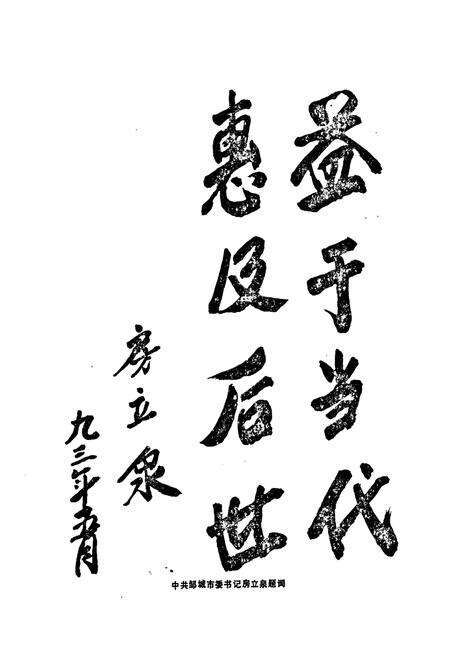 益于当代
惠及后世
房立泉
九三年五月
中共邹城市委书记房立泉题词